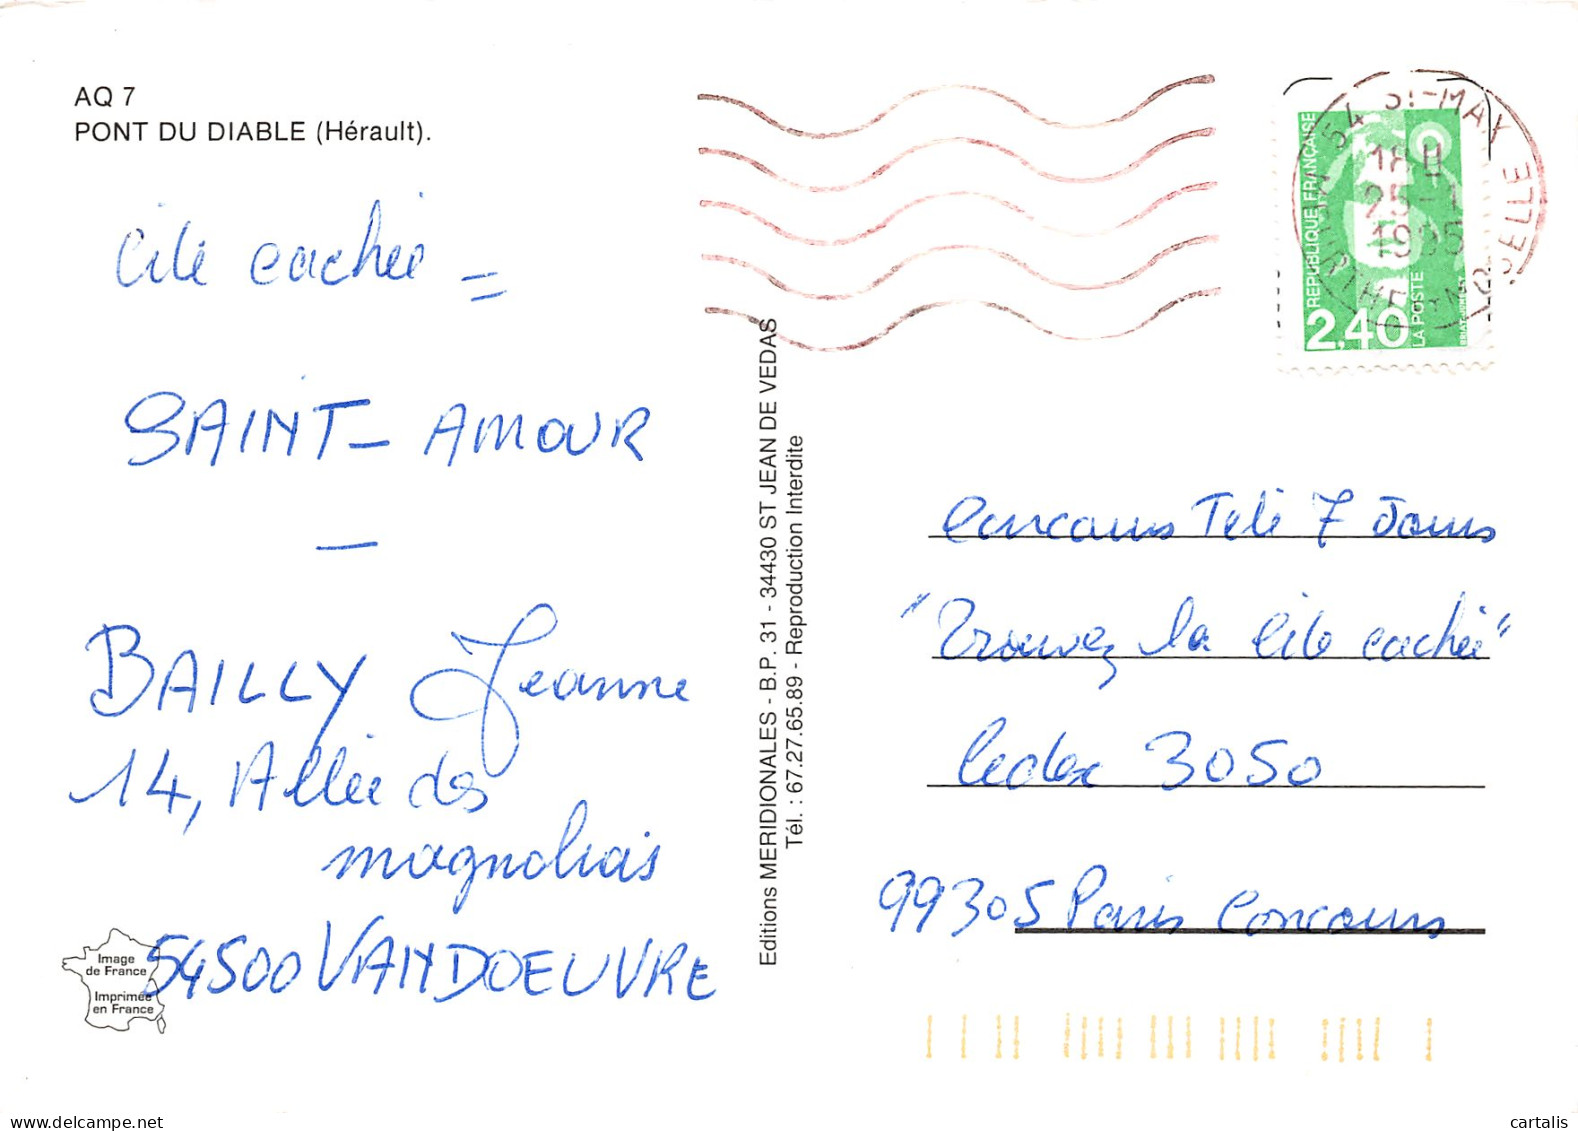 AQ 7
PONT DU DIABLE (Hérault).
Cité cachée =
SAINT-AMOUR
—
BAILLY Jeanne
14, Allée des
magnolias
54500 VANDOEUVRE
Image
de France
Imprimée
en France
Editions MERIDIONALES - B.P. 31 - 34430 ST JEAN DE VEDAS
Tél. : 67.27.65.89 - Reproduction Interdite
54 ST-MAX
18 H
25-1
1995
MEURTHE-ET-MOSELLE
REPUBLIQUE FRANÇAISE
2,40
LA POSTE
Concours Télé 7 Jours
"Trouvez la Cité cachée"
Cedex 3050
99305 Paris Concours
delcampe.net
cartalis